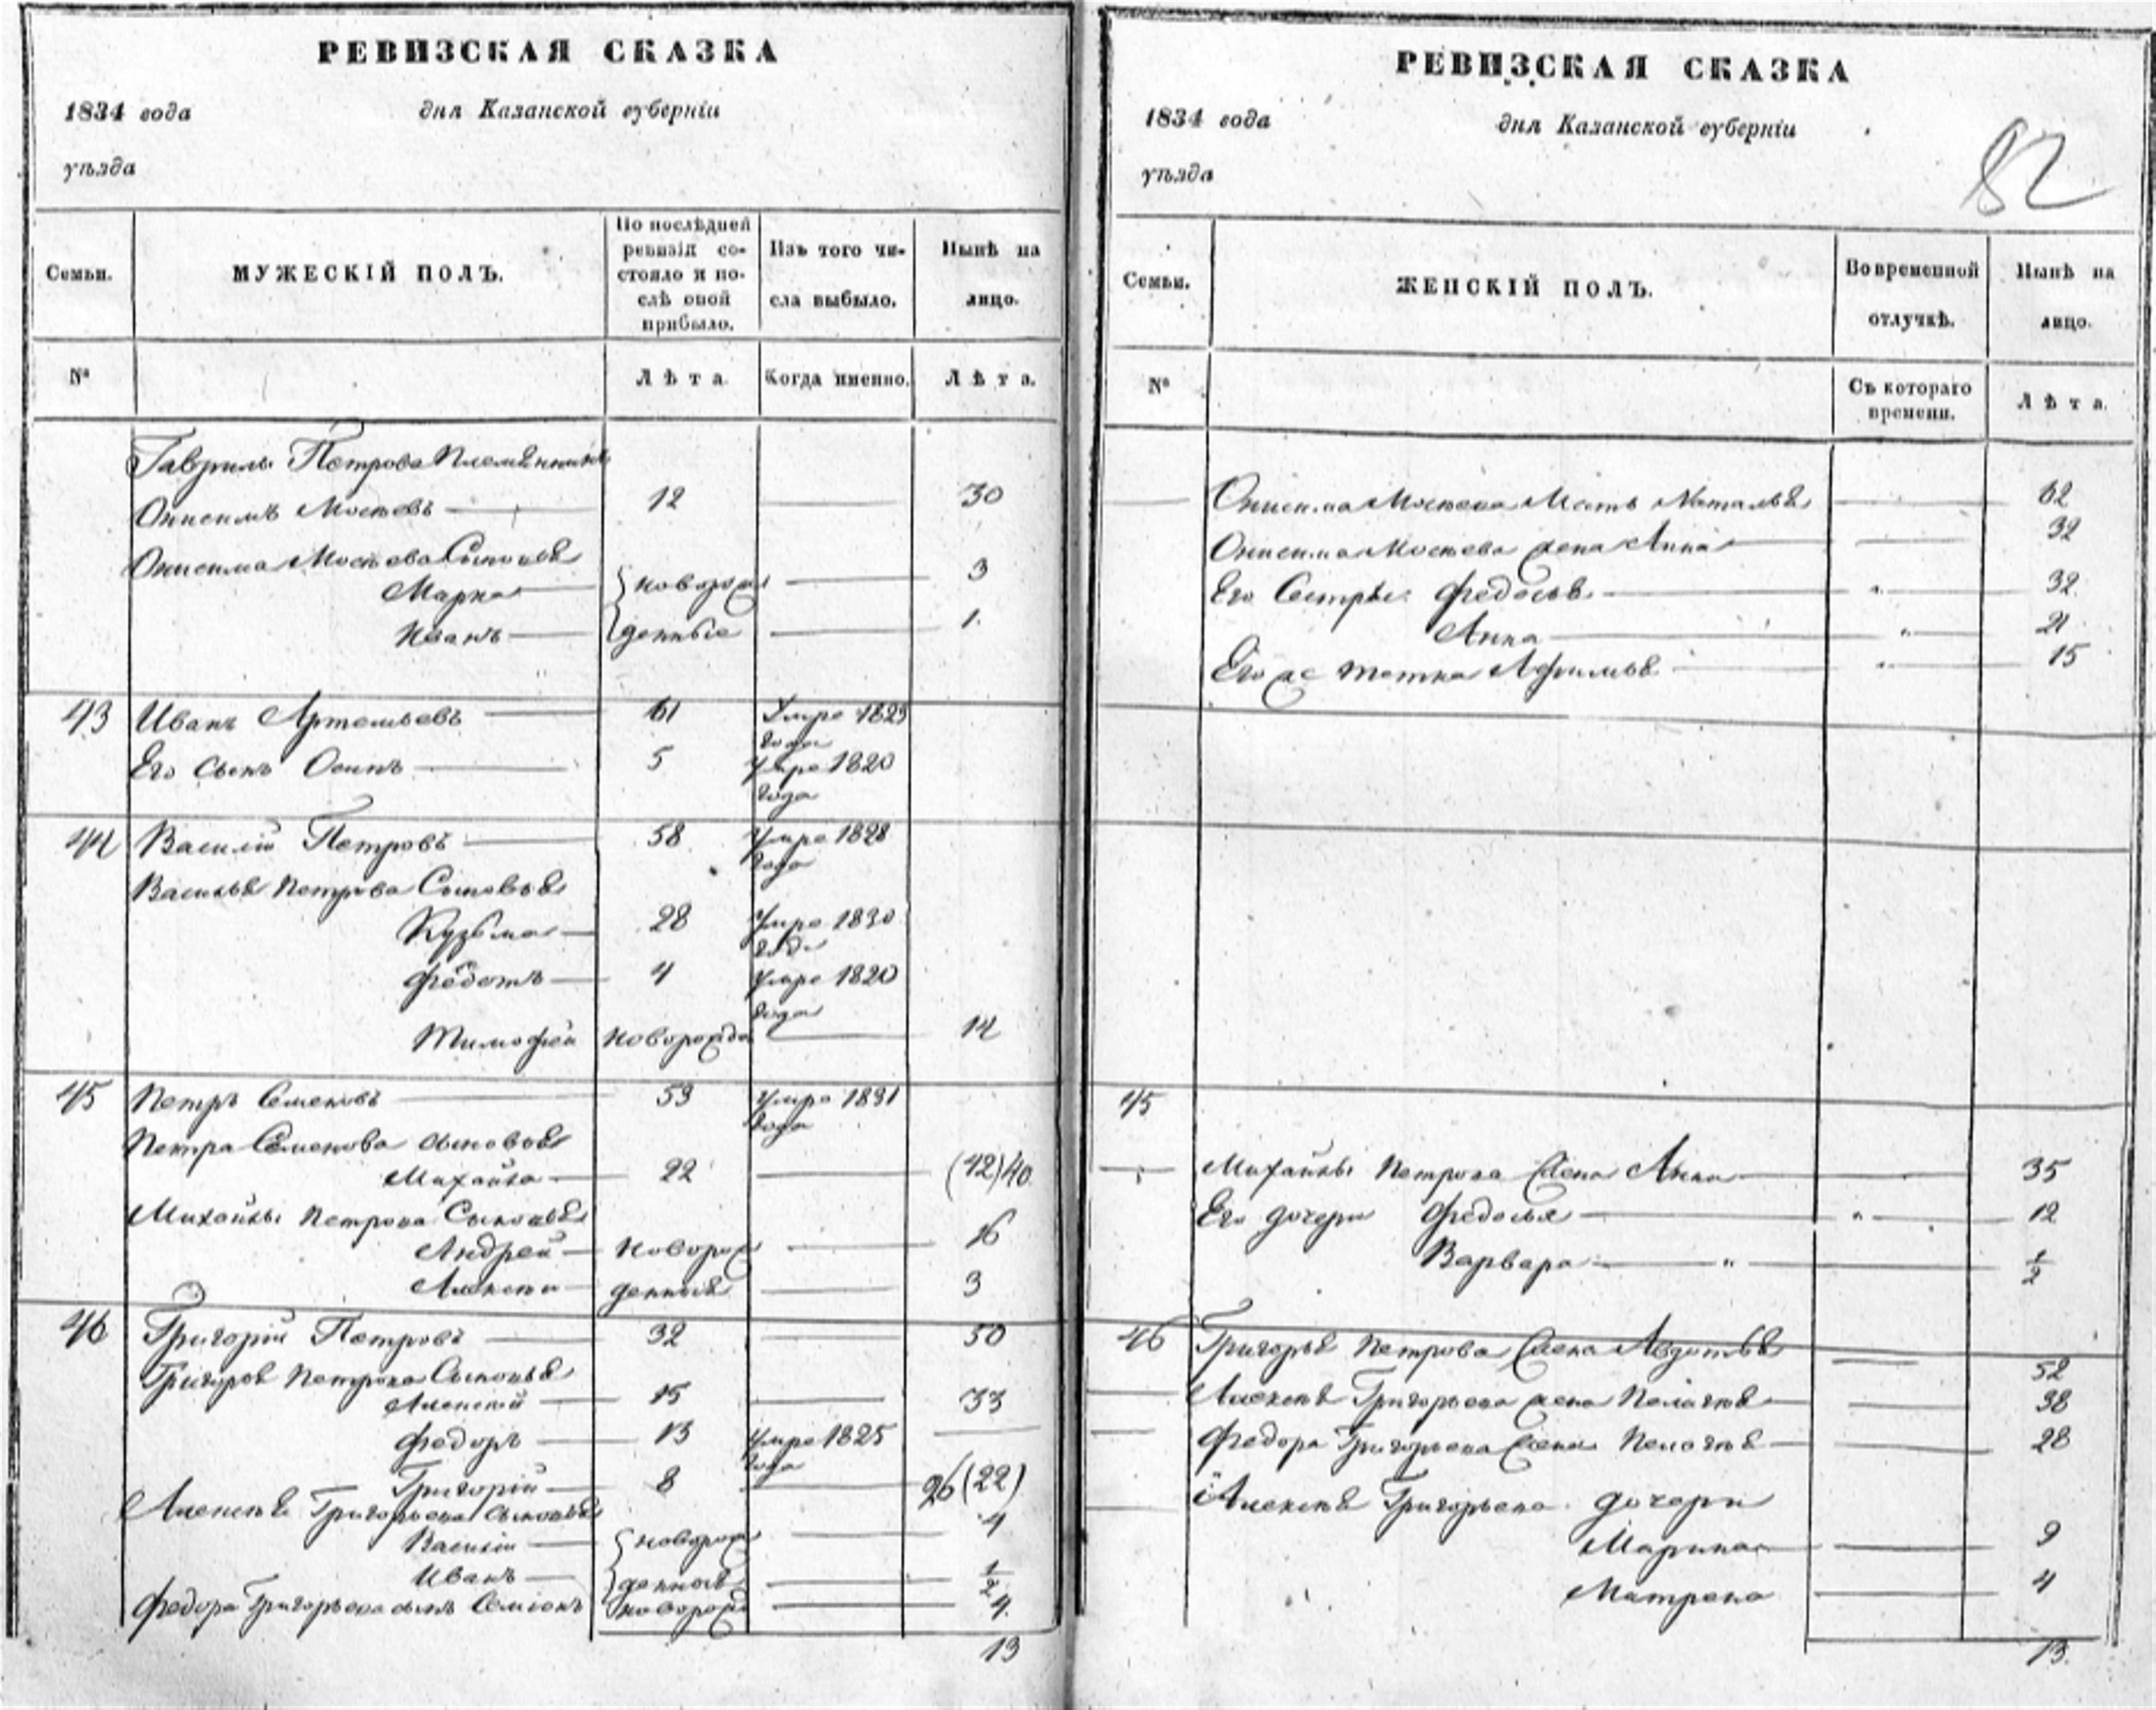 РЕВИЗСКАЯ СКАЗКА
1834 года дня Казанской губерніи
уѣзда
Семьи. МУЖЕСКІЙ ПОЛЪ. По послѣдней ревизіи состояло и послѣ оной прибыло. Изъ того числа выбыло. Нынѣ на лицо.
№ Лѣта. Когда именно. Лѣта.
Гаврилы Петрова Племянникъ
Онисимъ Мосѣевъ 12 30
Онисима Мосѣева Сыновья
Марка новорож 3
Иванъ денные 1
43 Иванъ Артемьевъ 61 Умре 1823
года
Его сынъ Осипъ 5 Умре 1820
года
44 Василій Петровъ 58 Умре 1828
года
Василья Петрова Сыновья
Кузьма 28 Умре 1830
года
Федотъ 4 Умре 1820
года
Тимофей новорожде 14
45 Петръ Семеновъ 53 Умре 1831
года
Петра Семенова сыновья
Михайла 22 (42) 40
Михайлы Петрова Сыновья
Андрей новорож 16
Алексѣй денные 3
46 Григорій Петровъ 32 50
Григорья Петрова Сыновья
Алексѣй 15 33
Федоръ 13 Умре 1825
года
Григорій 8 26 (22)
Алексѣя Григорьева сыновья
Василій новорож 4
Иванъ денные ½
Федора Григорьева сынъ Семенъ новорожд 4
13
РЕВИЗСКАЯ СКАЗКА
1834 года дня Казанской губерніи
уѣзда
82
Семьи. ЖЕНСКІЙ ПОЛЪ. Во временной отлучкѣ. Нынѣ на лицо.
№ Съ котораго времени. Лѣта.
Онисима Мосѣева Мать Наталья 62
Онисима Мосѣева жена Анна 32
Его Сестры Федосья 32
Анна 21
Его же тетка 15
45
Михайлы Петрова жена Анна 35
Его дочери Федосья 12
Варвара ½
46 Григорья Петрова жена Авдотья 52
Алексѣя Григорьева жена Пелагѣя 38
Федора Григорьева жена Пелагѣя 28
Алексѣя Григорьева дочери
Марина 9
Матрена 4
13.